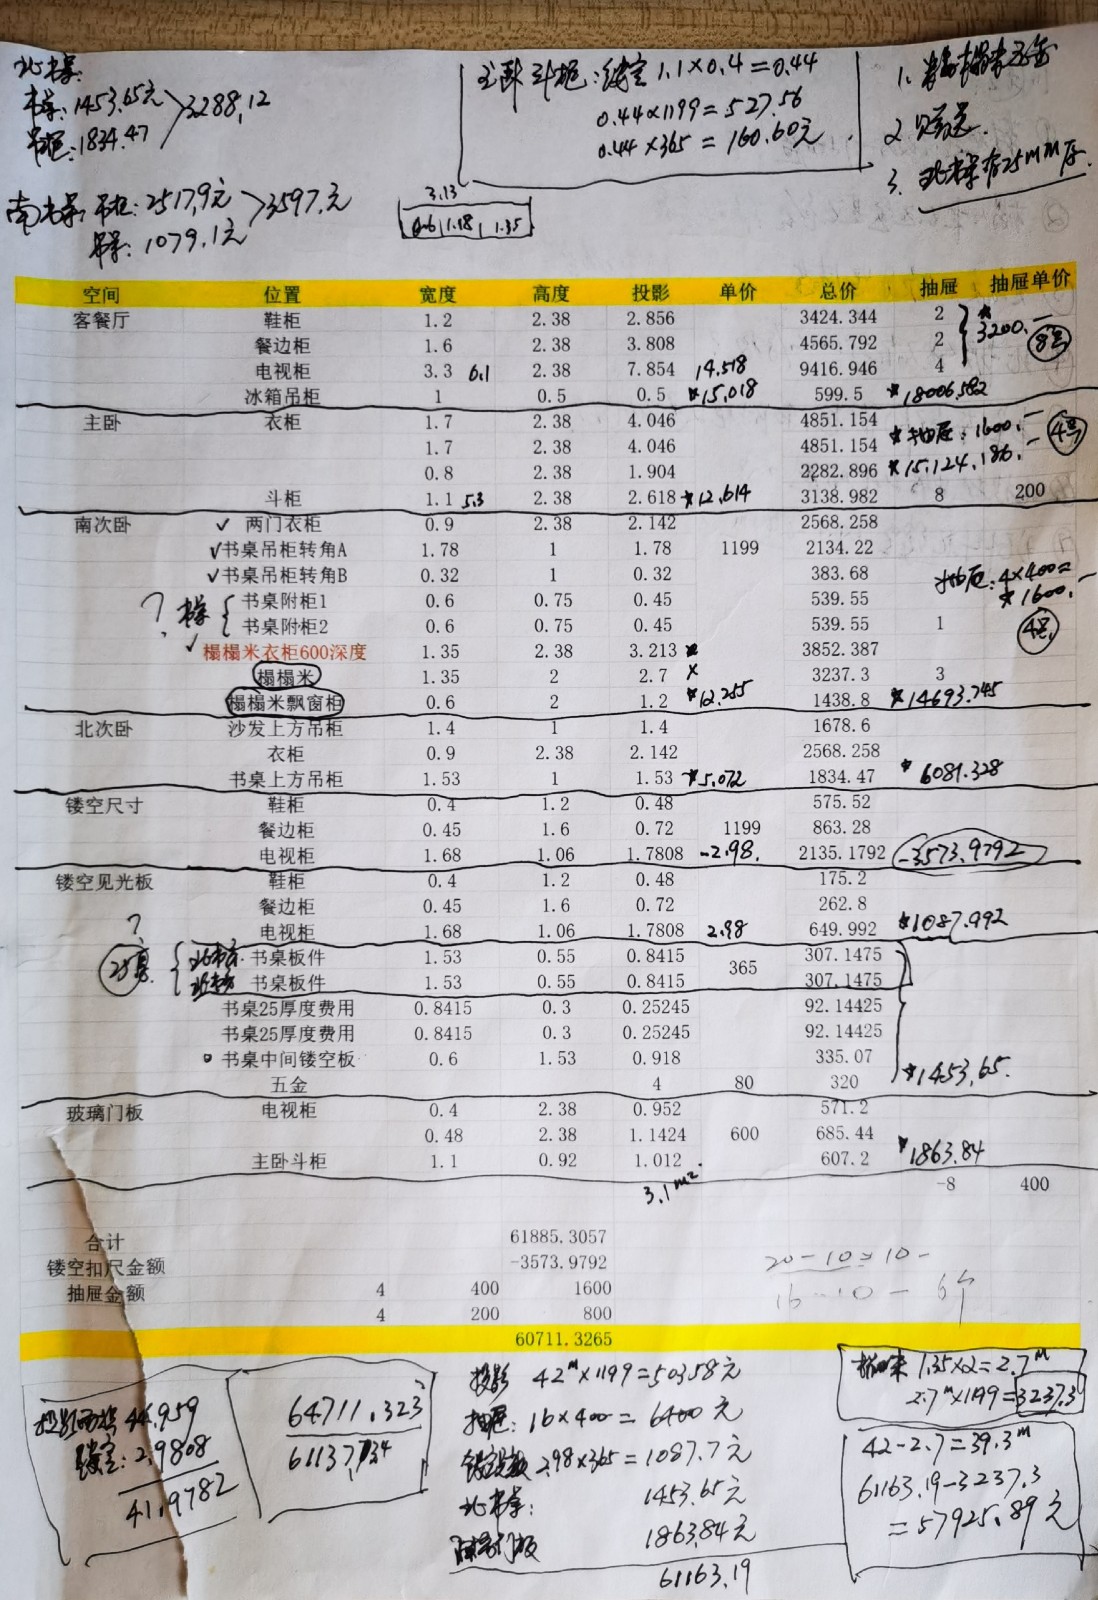 北书桌:
书桌:1453.65元
吊柜:1834.47
3288.12
主卧斗柜:镂空1.1×0.4=0.44
0.44×1199=527.56
0.44×365=160.60元
1.
2.
3. 北书桌有25mm厚.
南书桌:吊柜:2517.9元
书桌:1079.1元
3597.元
3.13
0.6 1.18 1.35
空间 位置 宽度 高度 投影 单价 总价 抽屉 抽屉单价
客餐厅 鞋柜 1.2 2.38 2.856 3424.344 2 * 3200.—
餐边柜 1.6 2.38 3.808 4565.792 2
电视柜 3.3 6.1 2.38 7.854 14.518 9416.946 4
冰箱吊柜 1 0.5 0.5 *15.018 599.5 *18006.582
主卧 衣柜 1.7 2.38 4.046 4851.154 *抽屉:1600.—
1.7 2.38 4.046 4851.154
0.8 2.38 1.904 2282.896 *15.124.186.—
斗柜 1.1 5.3 2.38 2.618 *12.614 3138.982 8 200
南次卧 ✓ 两门衣柜 0.9 2.38 2.142 2568.258
✓书桌吊柜转角A 1.78 1 1.78 1199 2134.22
✓书桌吊柜转角B 0.32 1 0.32 383.68 抽屉:4×400=
? 书桌 { 书桌附柜1 0.6 0.75 0.45 539.55 *1600.—
书桌附柜2 0.6 0.75 0.45 539.55 1
✓ 榻榻米衣柜600深度 1.35 2.38 3.213 * 3852.387
榻榻米 1.35 2 2.7 × 3237.3 3
榻榻米飘窗柜 0.6 2 1.2 *12.255 1438.8 *14693.745
北次卧 沙发上方吊柜 1.4 1 1.4 1678.6
衣柜 0.9 2.38 2.142 2568.258
书桌上方吊柜 1.53 1 1.53 *5.072 1834.47 *6081.328
镂空尺寸 鞋柜 0.4 1.2 0.48 575.52
餐边柜 0.45 1.6 0.72 1199 863.28
电视柜 1.68 1.06 1.7808 -2.98. 2135.1792 -3573.9792
镂空见光板 鞋柜 0.4 1.2 0.48 175.2
餐边柜 0.45 1.6 0.72 262.8
? 电视柜 1.68 1.06 1.7808 2.98 649.992 *1087.992
书桌板件 1.53 0.55 0.8415 307.1475
365
书桌板件 1.53 0.55 0.8415 307.1475
书桌25厚度费用 0.8415 0.3 0.25245 92.14425
书桌25厚度费用 0.8415 0.3 0.25245 92.14425
书桌中间镂空板 0.6 1.53 0.918 335.07
五金 4 80 320 *1453.65.
玻璃门板 电视柜 0.4 2.38 0.952 571.2
0.48 2.38 1.1424 600 685.44
主卧斗柜 1.1 0.92 1.012 607.2 *1863.84
3.1m². -8 400
合计 61885.3057
镂空扣尺金额 -3573.9792
抽屉金额 4 400 1600
4 200 800
20-10=10-
16-10-6个
60711.3265
投影面积 44.959
镂空:2.9808
41.9782
64711.323
投影 42m×1199=50358元
抽屉:16×400=6400元
2.98×365=1087.7元
北书桌: 1453.65元
玻璃门板 1863.84元
61163.19
榻榻米 1.35×2=2.7m
2.7m×1199=3237.3
42-2.7=39.3m
61163.19-3237.3
=57925.89元